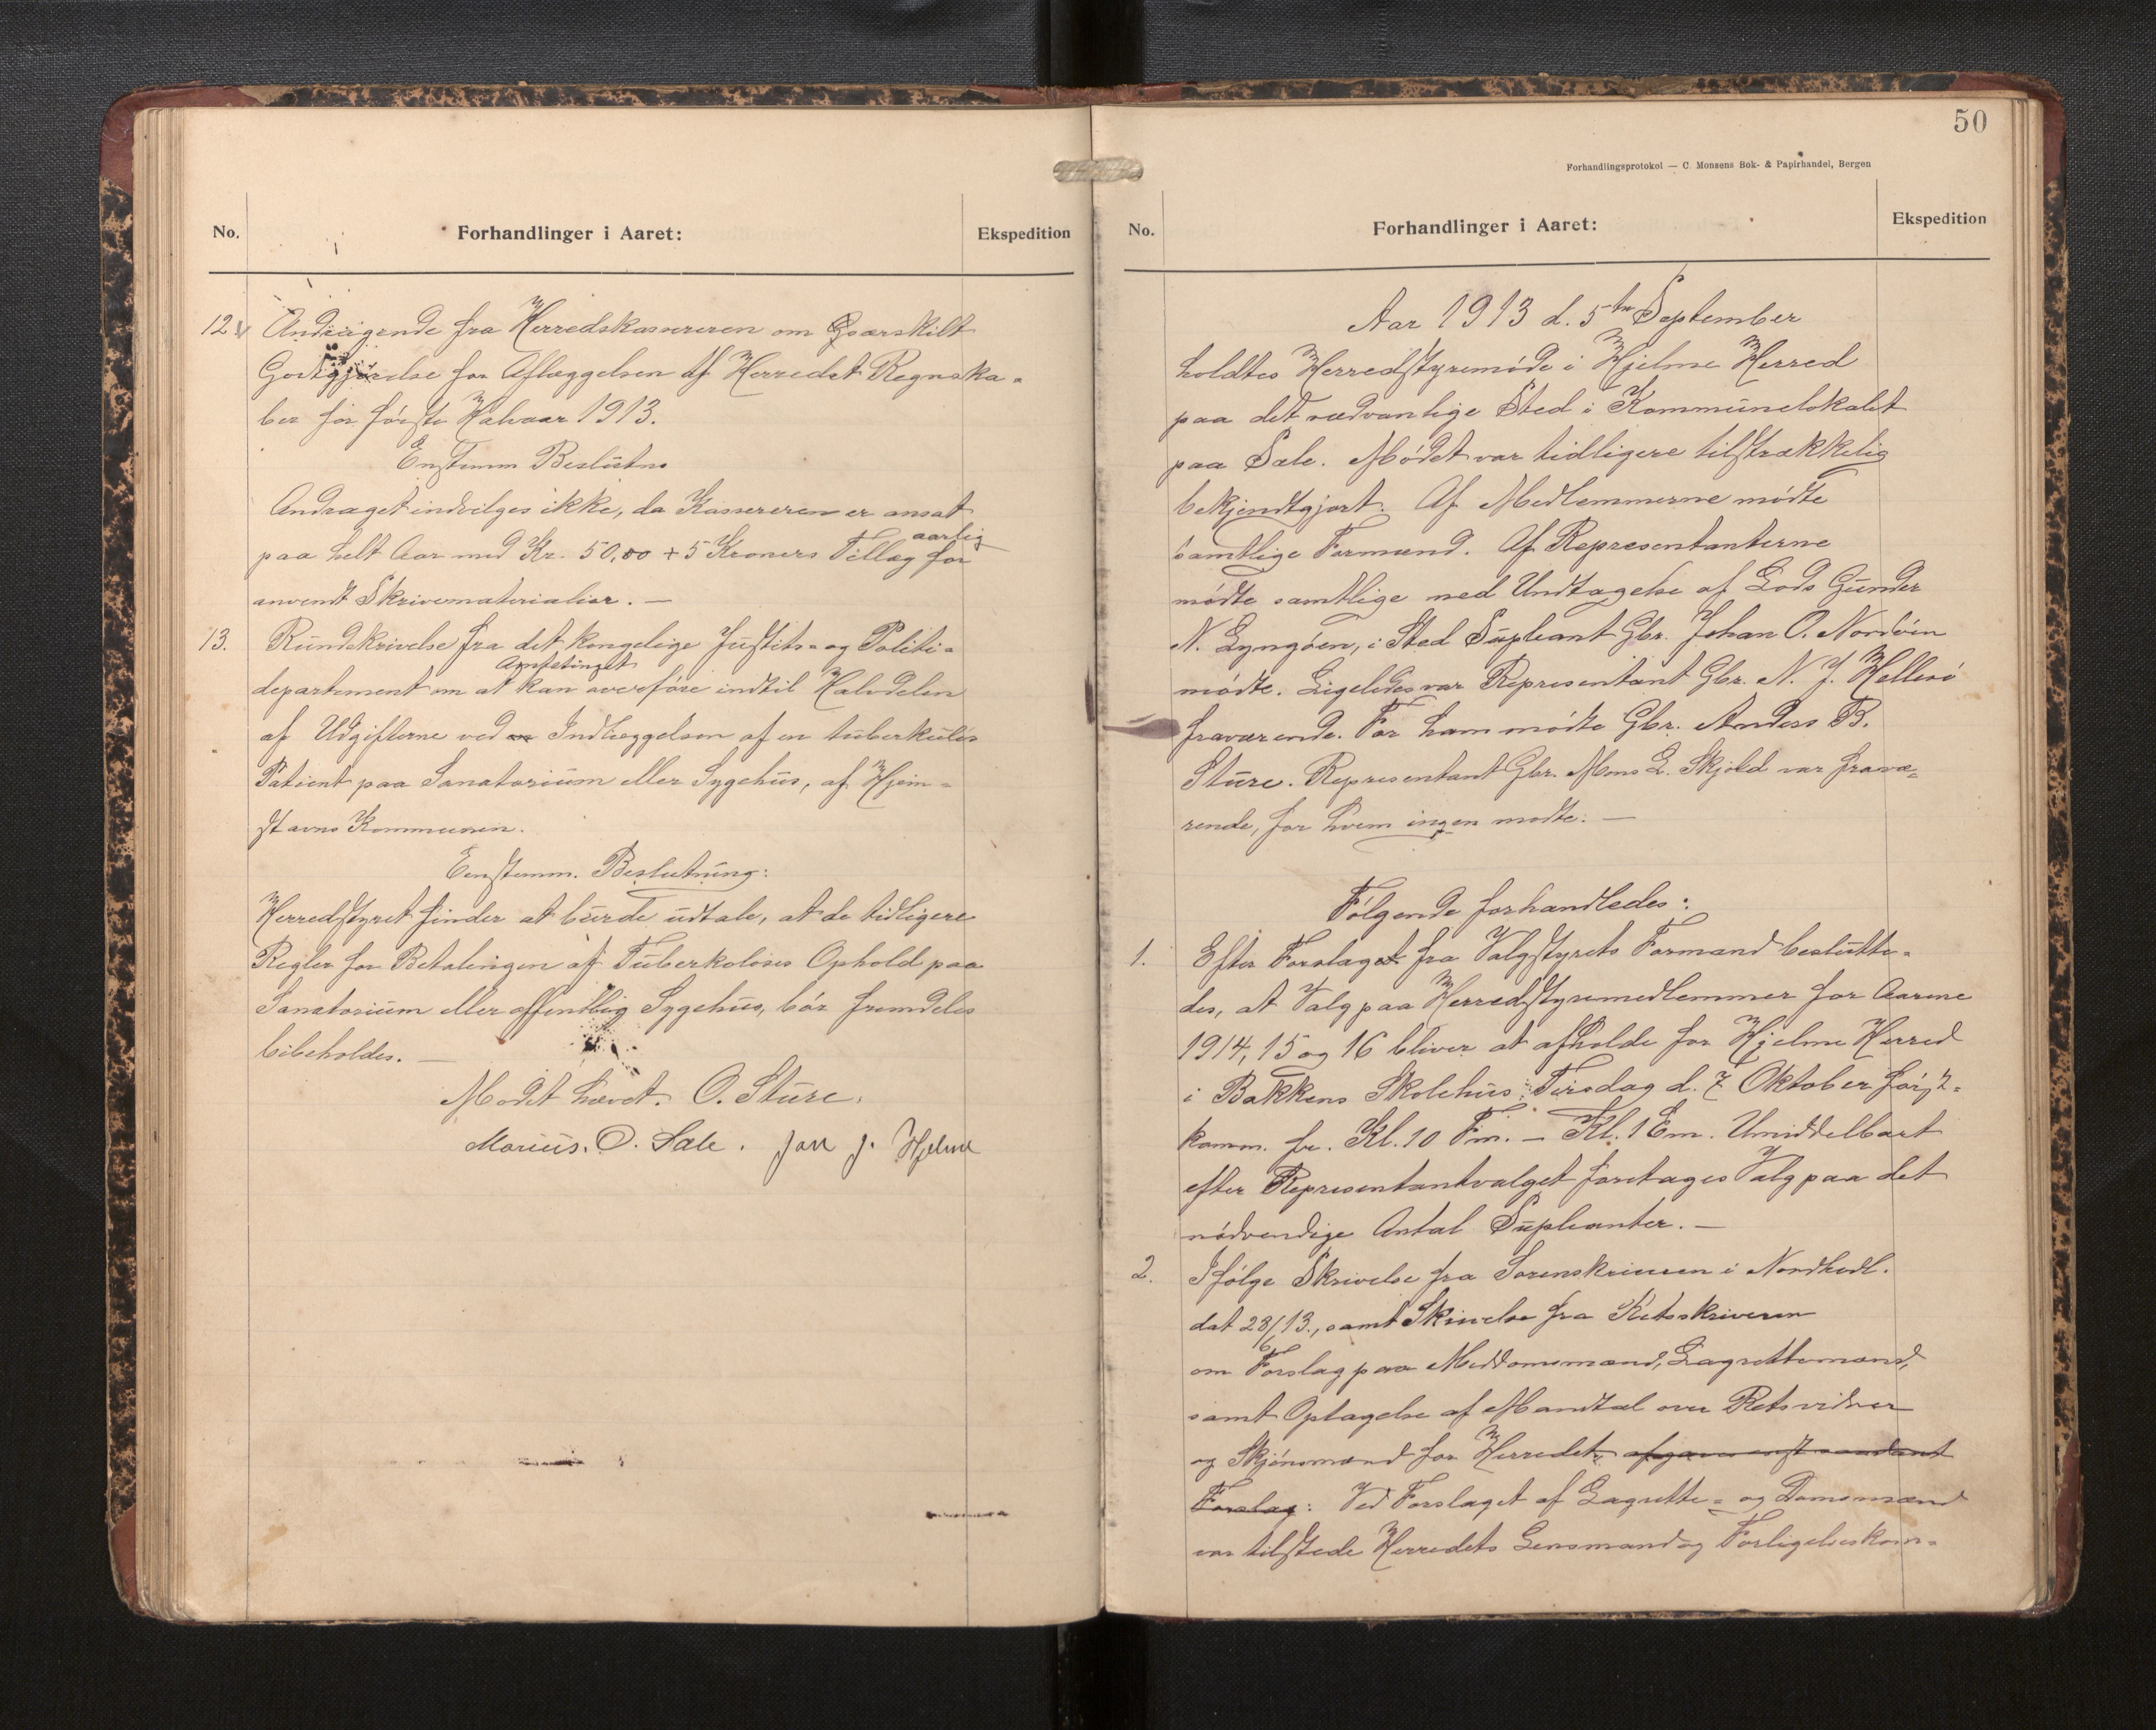 No.
Forhandlinger i Aaret:
Ekspedition
12
Andragende fra Herredskassereren om Særskilt
Godtgjørelse for Aflæggelsen af Herredet Regnska-
ber for første Halvaar 1913.
Enstemm Beslutns
Andraget indvilges ikke, da Kassereren er ansat
paa helt Aar med Kr. 50,00 + 5 Kroners Tillæg aarlig for
anvendt Skrivematerialier. —
13.
Rundskrivelse fra det kongelige Justits- og Politi-
departement om at Amtstinget kan overføre indtil Halvdelen
af Udgifterne ved en Indlæggelsen af en tuberkuløs
Patient paa Sanatorium eller Sygehus, af Hjem-
stavns Kommunen.
Eenstemm. Beslutning:
Herredstyret finder at burde udtale, at de tidligere
Regler for Betalingen af Tuberkoløses Ophold paa
Sanatorium eller offentlig Sygehus, bør fremdeles
bibeholdes. —
Mødet hævet. O. Sture.
Marius. O. Sæle. Jon J. Hjelme
50
Forhandlingsprotokol — C. Monsens Bok- & Papirhandel, Bergen
No.
Forhandlinger i Aaret:
Ekspedition
Aar 1913 d. 5te September
holdtes Herredstyremøde i Hjelme Herred
paa det sædvanlige Sted i Kommunelokalet
paa Sæle. Mødet var tidligere tilstrækkelig
bekjendtgjort. Af Medlemmerne mødte
samtlige Formænd. Af Repræsentanterne
mødte samtlige med Undtagelse af Lods Gunder
N. Lyngøen, i Sted Supleant Gbr. Johan O. Nordøen
mødte. Ligeledes var Representant Gbr. N. J. Hellesø
fraværende. For ham mødte Gbr. Anders B.
Sture. Representant Gbr. Mons L. Skjold var fravæ-
rende, for hvem ingen mødte. —
Følgende forhandledes:
1.
Efter Forslaget fra Valgstyrets Formand beslutte-
des, at Valg paa Herredstyremedlemmer for Aarene
1914, 15 og 16 bliver at afholde for Hjelme Herred
i Bakkens Skolehus Tirsdag d. 7 Oktober først-
komm. fr. Kl. 10 Fm. — Kl. 1 Em. Umiddelbart
efter Representantvalget foretages Valg paa det
nødvendige Antal Supleanter. —
2.
Ifølge Skrivelse fra Sorenskriveren i Nordhordl.
dat 28/6 13., samt Skrivelse fra Retsskriveren
om Forslag paa Meddomsmænd, Lagrettemænd,
samt Optagelse af Mandtal over Retsvidner
og Skjønsmænd for Herredet,
Forslag: Ved Forslaget af Lagrette- og Domsmænd
var tilstede Herredets Lensmand og Forligelseskom-